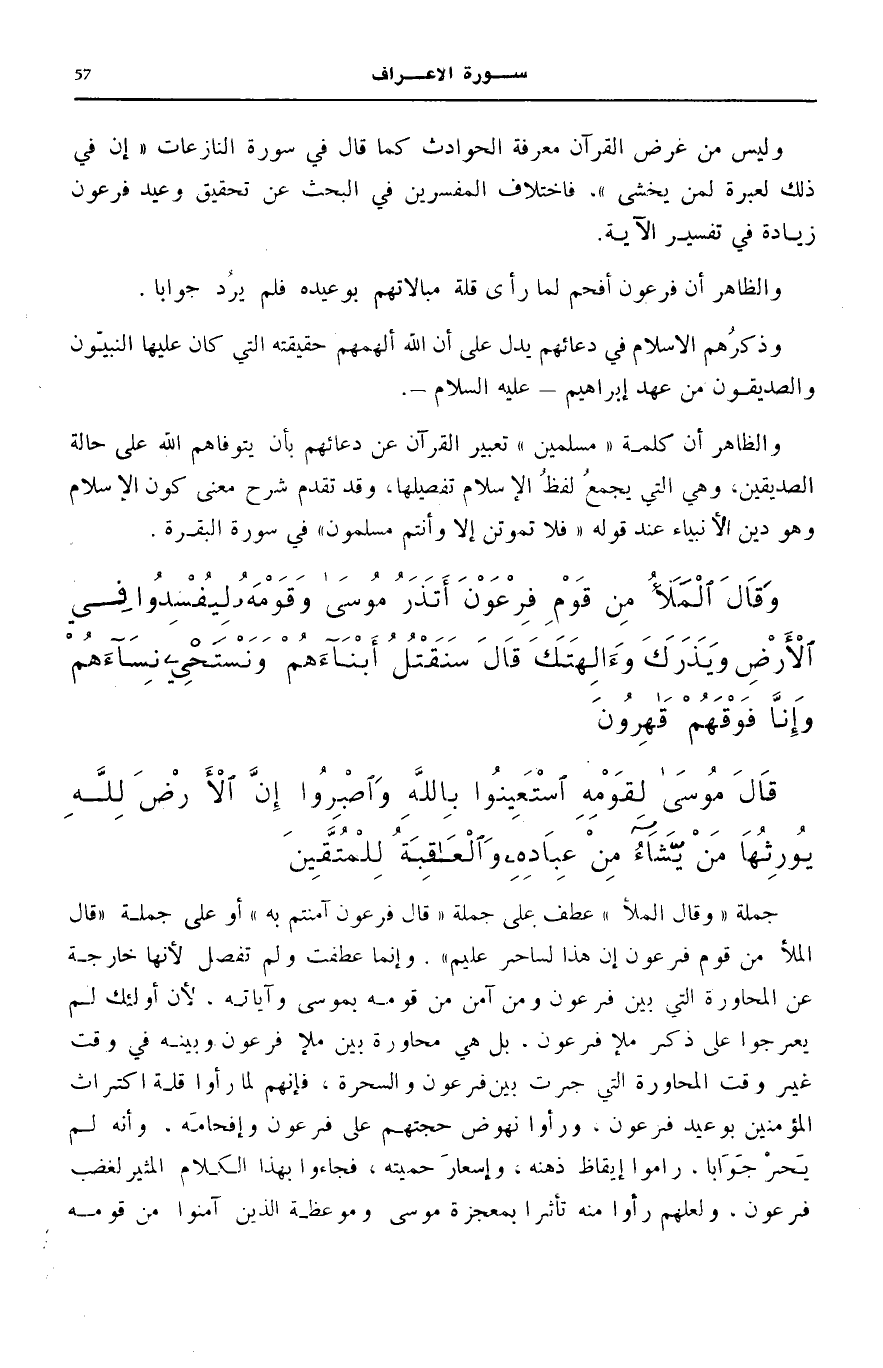 ســورة الاعــراف 57
وليس من غرض القرآن معرفة الحوادث كما قال في سورة النازعات « إن في
ذلك لعبرة لمن يخشى ». فاختلاف المفسرين في البحث عن تحقيق وعيد فرعون
زيـادة في تفسيـر الآيـة.
والظاهر أن فرعون أفحم لما رأى قلة مبالاتهم بوعيده فلم يرُد جوابا .
وذكرُهم الاسلام في دعائهم يدل على أن الله ألهمهم حقيقته التي كان عليها النبيّون
والصديقـون من عهد إبراهيم – عليه السلام –.
والظاهر أن كلمـة « مسلمين » تعبير القرآن عن دعائهم بأن يتوفاهم الله على حالة
الصديقين، وهي التي يجمعُ لفظُ الإسلام تفصيلها، وقد تقدم شرح معنى كون الإسلام
وهو دين الأنبياء عند قوله « فلا تموتن إلا وأنتم مسلمون» في سورة البقـرة .
وَقَالَ ٱلْمَلَأُ مِن قَوْمِ فِرْعَوْنَ أَتَذَرُ مُوسَىٰ وَقَوْمَهُۥ لِيُفْسِدُوا فِــي
ٱلْأَرْضِ وَيَذَرَكَ وَءَالِهَتَكَ قَالَ سَنَقْتُلُ أَبْنَـآءَهُمْ وَنَسْتَحْيِۦ نِسَـآءَهُمْ
وَإِنَّا فَوْقَهُمْ قَٰهِرُونَ
قَالَ مُوسَىٰ لِقَوْمِهِ ٱسْتَعِينُوا بِاللَّهِ وَٱصْبِرُوا إِنَّ ٱلْأَرْضَ لِلَّــهِ
يُورِثُهَا مَنْ يَّشَآءُ مِنْ عِبَادِهِۦ وَٱلْعَـٰقِبَةُ لِلْمُتَّقِينَ
جملة « وقال الملأ » عطف على جملة « قال فرعون آمنتم به » أو على جملـة «قال
الملأ من قوم فرعون إن هذا لساحر عليم» . وإنما عطفت ولم تفصل لأنها خارجـة
عن المحاورة التي بين فرعون ومن آمن من قومـه بموسى وآياتـه . لأن أولئك لـم
يعرجوا على ذكر ملإ فرعون . بل هي محاورة بين ملإ فرعون وبينـه في وقت
غير وقت المحاورة التي جرت بين فرعون والسحرة ، فإنهم لما رأوا قلـة اكتراث
المؤمنين بوعيد فرعون ، ورأوا نهوض حجتهـم على فرعون وإفحامَه . وأنه لـم
يَحرْ جَوَابا . راموا إيقاظ ذهنه ، وإسعارَ حميته ، فجاءوا بهذا الكـلام المثير لغضب
فرعون . ولعلهم رأوا منه تأثرا بمعجزة موسى وموعظـة الذين آمنوا من قومــه